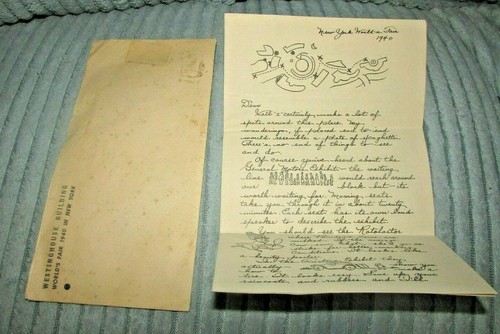 WESTINGHOUSE BUILDING
WORLD'S FAIR 1940 IN NEW YORK
New York World's Fair
1940
Dear
Well I certainly make a lot of
spots around this place. My
wanderings, if placed end to end
would resemble a plate of spaghetti.
There's no end of things to see
and do.
Of course you've heard about the
General Motors Exhibit – the waiting
line would reach around
our block but it's
worth waiting for. Moving seats
take you through it in about twenty
minutes. Each seat has its own loud
speaker to describe the exhibit.
You should see the
a beauty
exhibit they
show you
how to make a
tire. It looks easy. Save up your
raincoats and rubbers and I'll